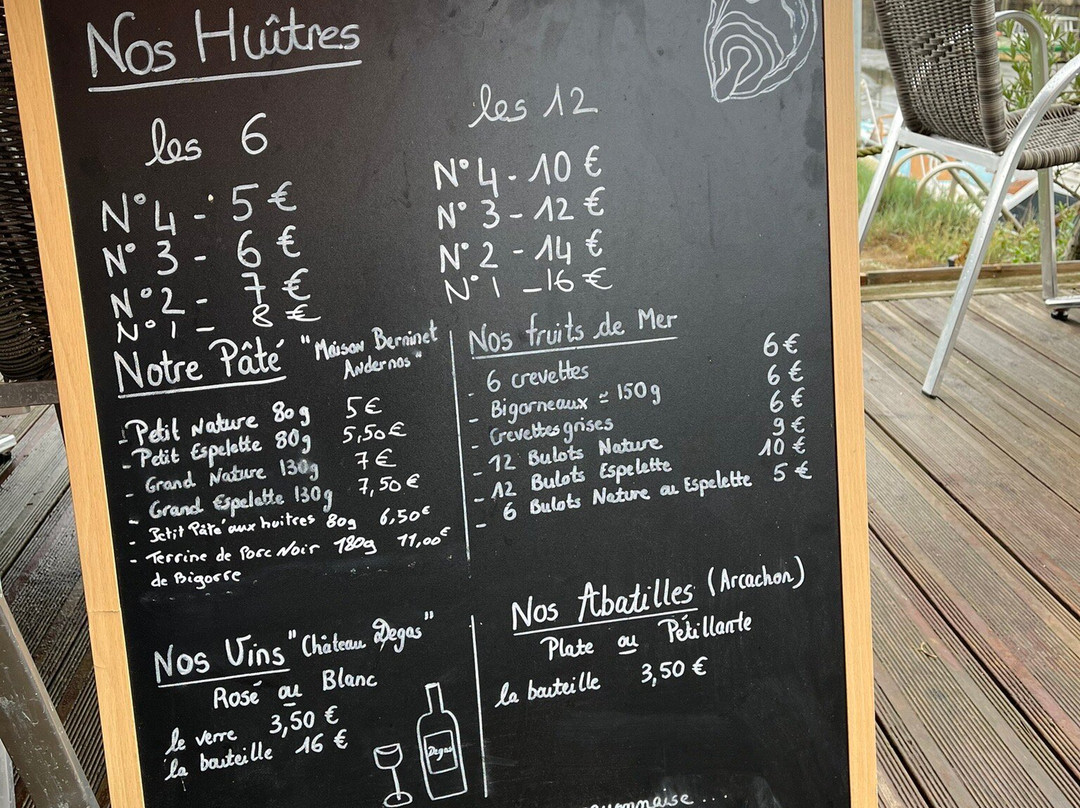 Nos Huîtres
les 6
N°4 - 5 €
N°3 - 6 €
N°2 - 7 €
N°1 - 8 €
les 12
N°4 - 10 €
N°3 - 12 €
N°2 - 14 €
N°1 - 16 €
Notre Pâté "Maison Berninet
Andernos"
- Petit Nature 80g 5€
- Petit Espelette 80g 5,50€
- Grand Nature 130g 7€
- Grand Espelette 130g 7,50€
- Petit Pâté aux huitres 80g 6,50€
- Terrine de Porc Noir 180g 11,00€
de Bigorre
Nos fruits de Mer
- 6 crevettes 6€
- Bigorneaux ≃ 150g 6€
- Crevettes grises 6€
- 12 Bulots Nature 9€
- 12 Bulots Espelette 10€
- 6 Bulots Nature ou Espelette 5€
Nos Vins "Château Degas"
Rosé ou Blanc
le verre 3,50 €
la bouteille 16 €
Degas
Nos Abatilles (Arcachon)
Plate ou Pétillante
la bouteille 3,50 €